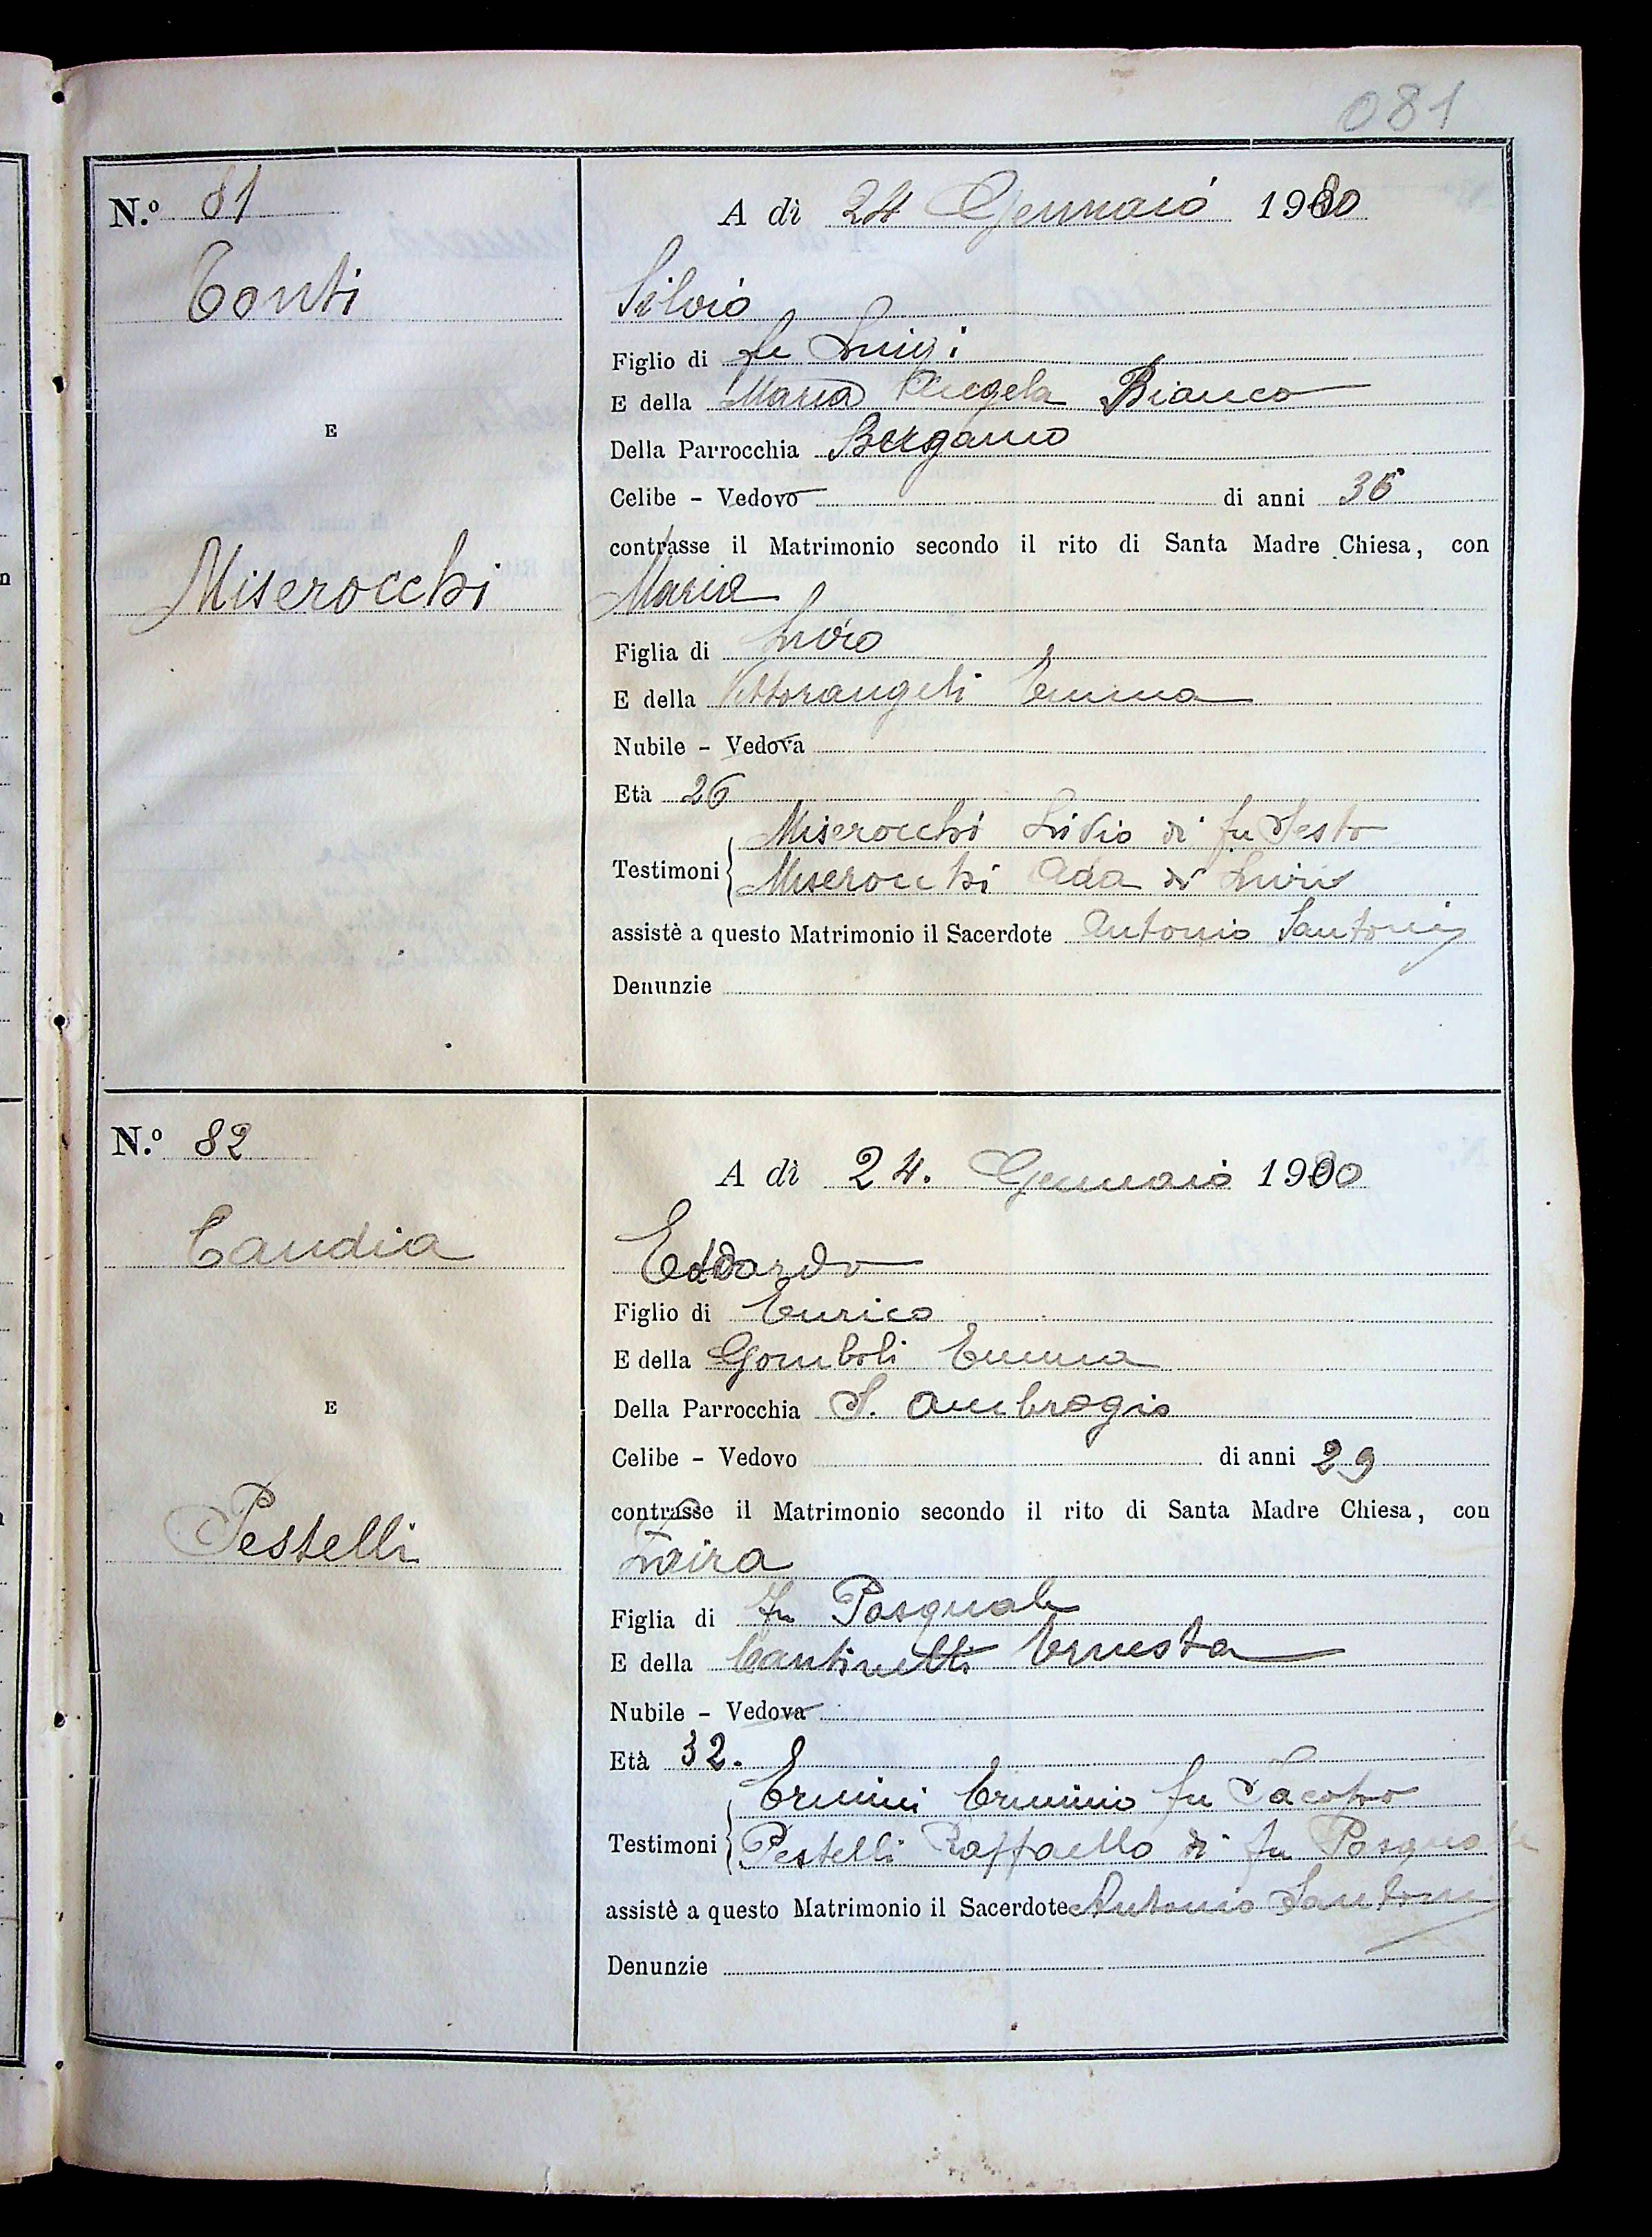 081
N.º 81
A dì 24 Gennaio 1930
Conti
Silvio
Figlio di fu Luigi
E della Maria Angela Bianco
E
Della Parrocchia Bergamo
Celibe - Vedovo di anni 36
contrasse il Matrimonio secondo il rito di Santa Madre Chiesa, con
Miserocchi
Maria
Figlia di Livio
E della Vittorangeli Emma
Nubile - Vedova
Età 26
Miserocchi Livio di fu Sesto
Testimoni
Miserocchi Ada di Livio
assistè a questo Matrimonio il Sacerdote Antonio Santoni
Denunzie
N.º 82
A dì 24. Gennaio 1930
Candia
Edoardo
Figlio di Enrico
E della Gomboli Emma
E
Della Parrocchia S. Ambrogio
Celibe - Vedovo di anni 29
contrasse il Matrimonio secondo il rito di Santa Madre Chiesa, con
Pestelli
Figlia di fu Pasquale
E della Cantinelli Ernesta
Nubile - Vedova
Età 32.
Ermini Erminio fu Jacopo
Testimoni
Pestelli Raffaello di fu Pasquale
assistè a questo Matrimonio il Sacerdote Antonio Santoni
Denunzie